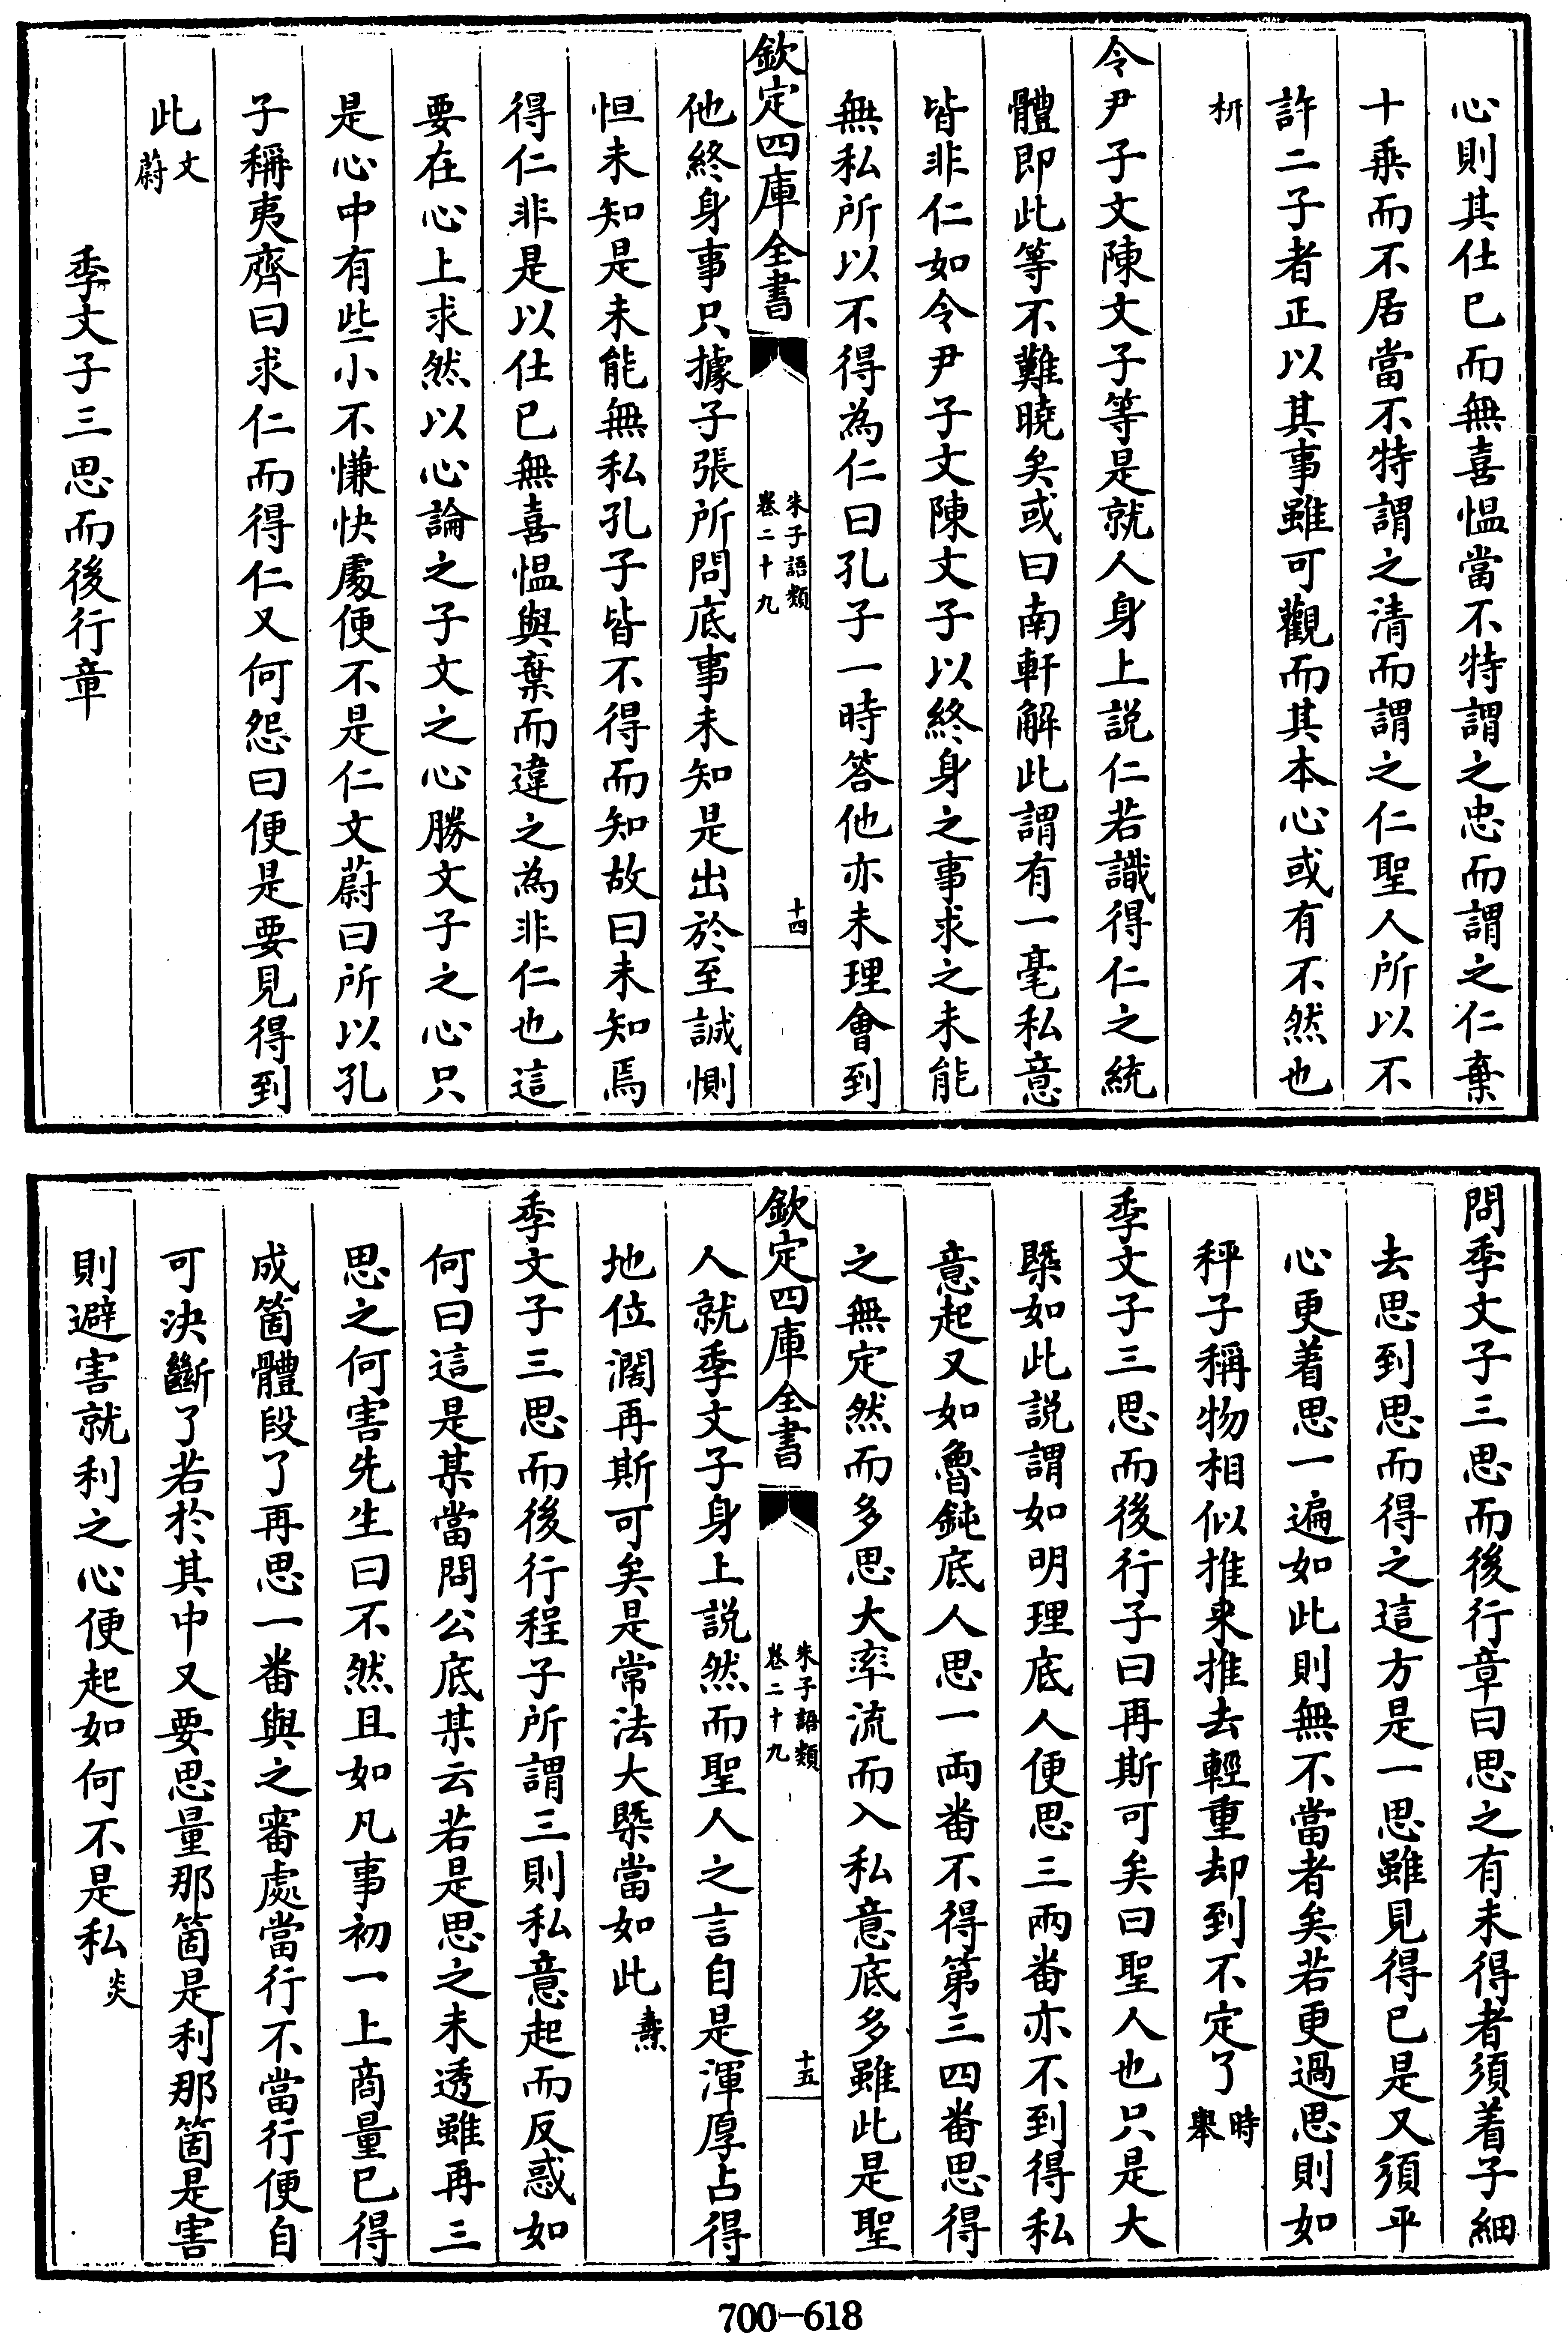 心則其仕已而無喜愠當不特謂之忠而謂之仁棄
十乘而不居當不特謂之清而謂之仁聖人所以不
許二子者正以其事雖可觀而其本心或有不然也
枅
令尹子文陳文子等是就人身上説仁若識得仁之統
體即此等不難曉矣或曰南軒解此謂有一毫私意
皆非仁如令尹子文陳文子以終身之事求之未能
無私所以不得為仁曰孔子一時答他亦未理會到
欽定四庫全書
朱子語類
卷二十九
十四
他終身事只據子張所問底事未知是出於至誠惻
怛未知是未能無私孔子皆不得而知故曰未知焉
得仁非是以仕已無喜愠與棄而違之為非仁也這
要在心上求然以心論之子文之心勝文子之心只
是心中有些小不慊快處便不是仁文蔚曰所以孔
子稱夷齊曰求仁而得仁又何怨曰便是要見得到
此文蔚
季文子三思而後行章
問季文子三思而後行章曰思之有未得者須着子細
去思到思而得之這方是一思雖見得已是又須平
心更着思一遍如此則無不當者矣若更過思則如
秤子稱物相似推来推去輕重却到不定了時舉
季文子三思而後行子曰再斯可矣曰聖人也只是大
槩如此説謂如明理底人便思三兩番亦不到得私
意起又如魯鈍底人思一兩番不得第三四番思得
之無定然而多思大率流而入私意底多雖此是聖
欽定四庫全書
朱子語類
卷二十九
十五
人就季文子身上説然而聖人之言自是渾厚占得
地位濶再斯可矣是常法大槩當如此燾
季文子三思而後行程子所謂三則私意起而反惑如
何曰這是某當問公底某云若是思之未透雖再三
思之何害先生曰不然且如凡事初一上商量已得
成箇體段了再思一番與之審處當行不當行便自
可決斷了若於其中又要思量那箇是利那箇是害
則避害就利之心便起如何不是私炎
700-618